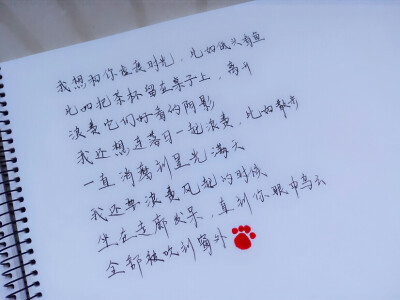 我想和你虚度时光，比如低头看鱼
比如把茶杯留在桌子上，离开
浪费它们好看的阴影
我还想连落日一起浪费，比如散步
一直消磨到星光满天
我还要浪费风起的时候
坐在走廊发呆，直到你眼中乌云
全部被吹到窗外